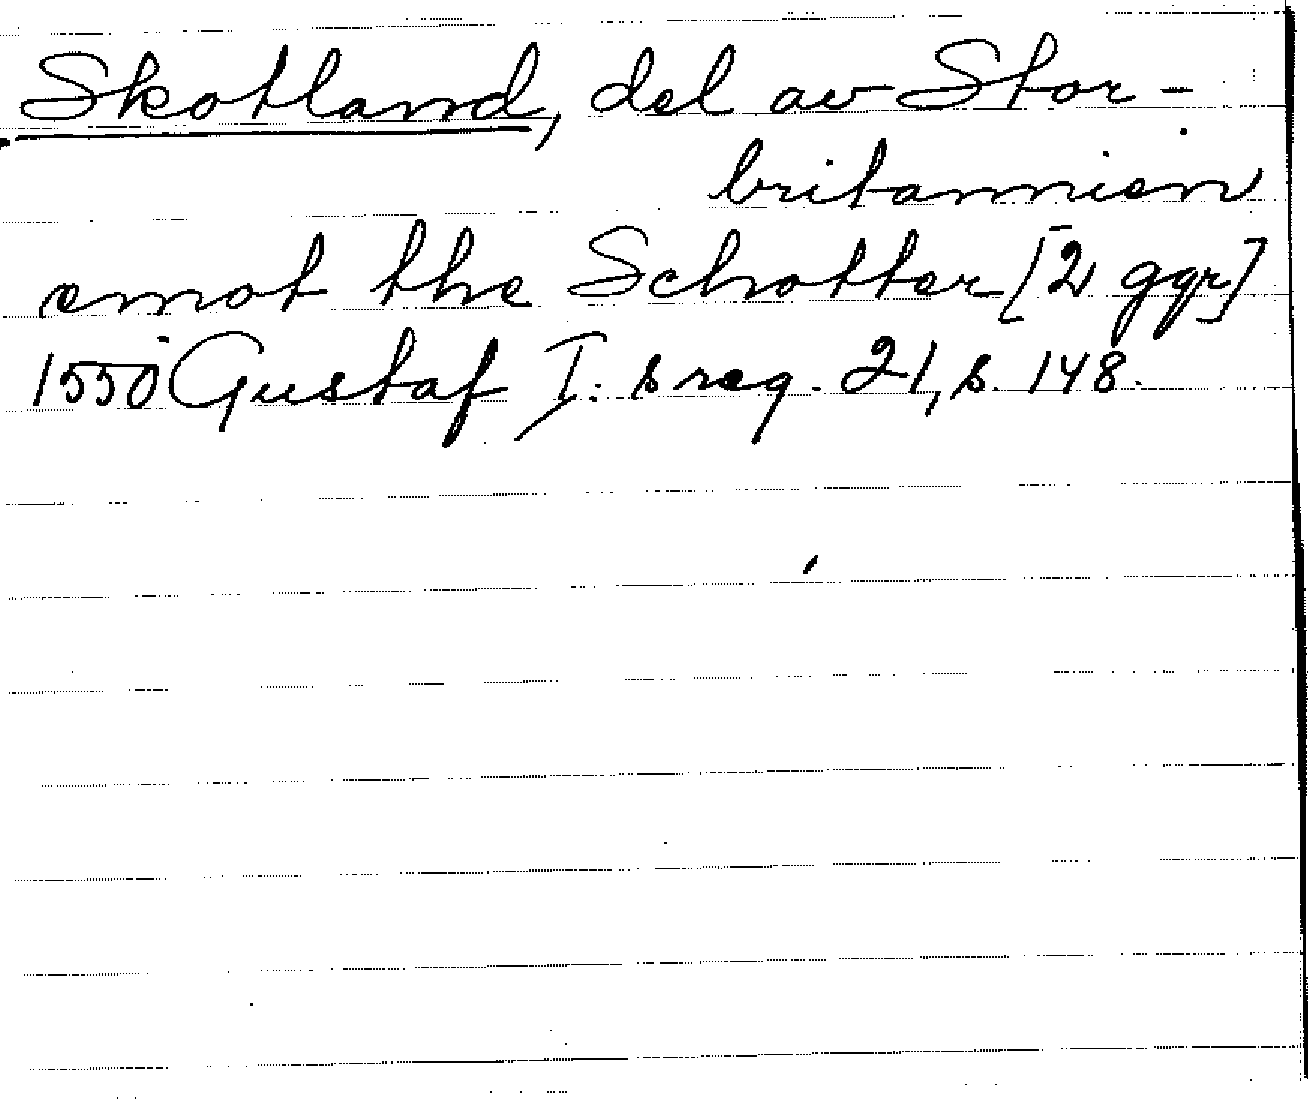 Skotland, del av Stor-
britannien
emot the Schotter [2 ggr]
1550 Gustaf I:s reg. 21, s. 148.